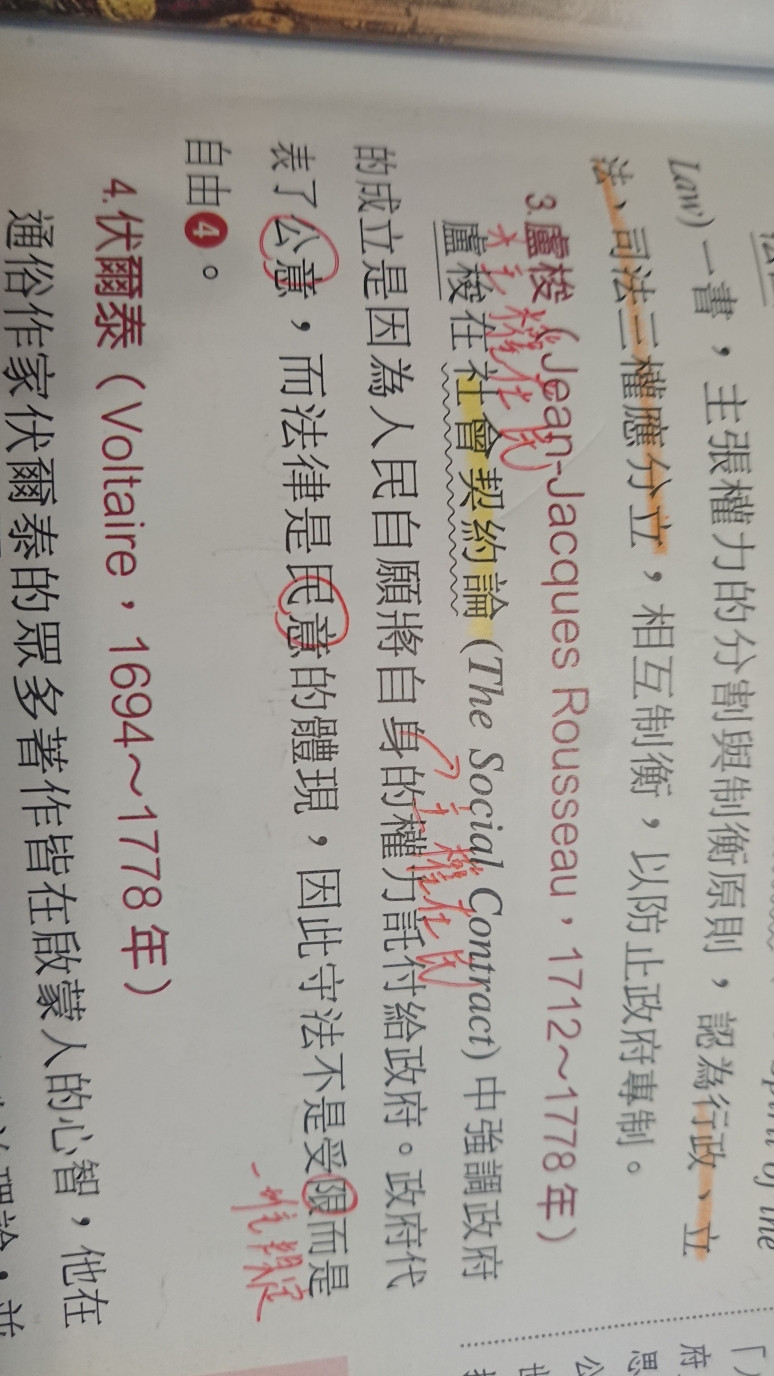 Law) 一書，主張權力的分割與制衡原則，認為行政、立
法、司法三權應分立，相互制衡，以防止政府專制。
3.盧梭（Jean-Jacques Rousseau，1712～1778 年）
主權在民
盧梭在社會契約論 (The Social Contract) 中強調政府
主權在民
的成立是因為人民自願將自身的權力託付給政府。政府代
表了公意，而法律是民意的體現，因此守法不是受限而是
自由❹。
4.伏爾泰（Voltaire，1694～1778 年）
通俗作家伏爾泰的眾多著作皆在啟蒙人的心智，他在